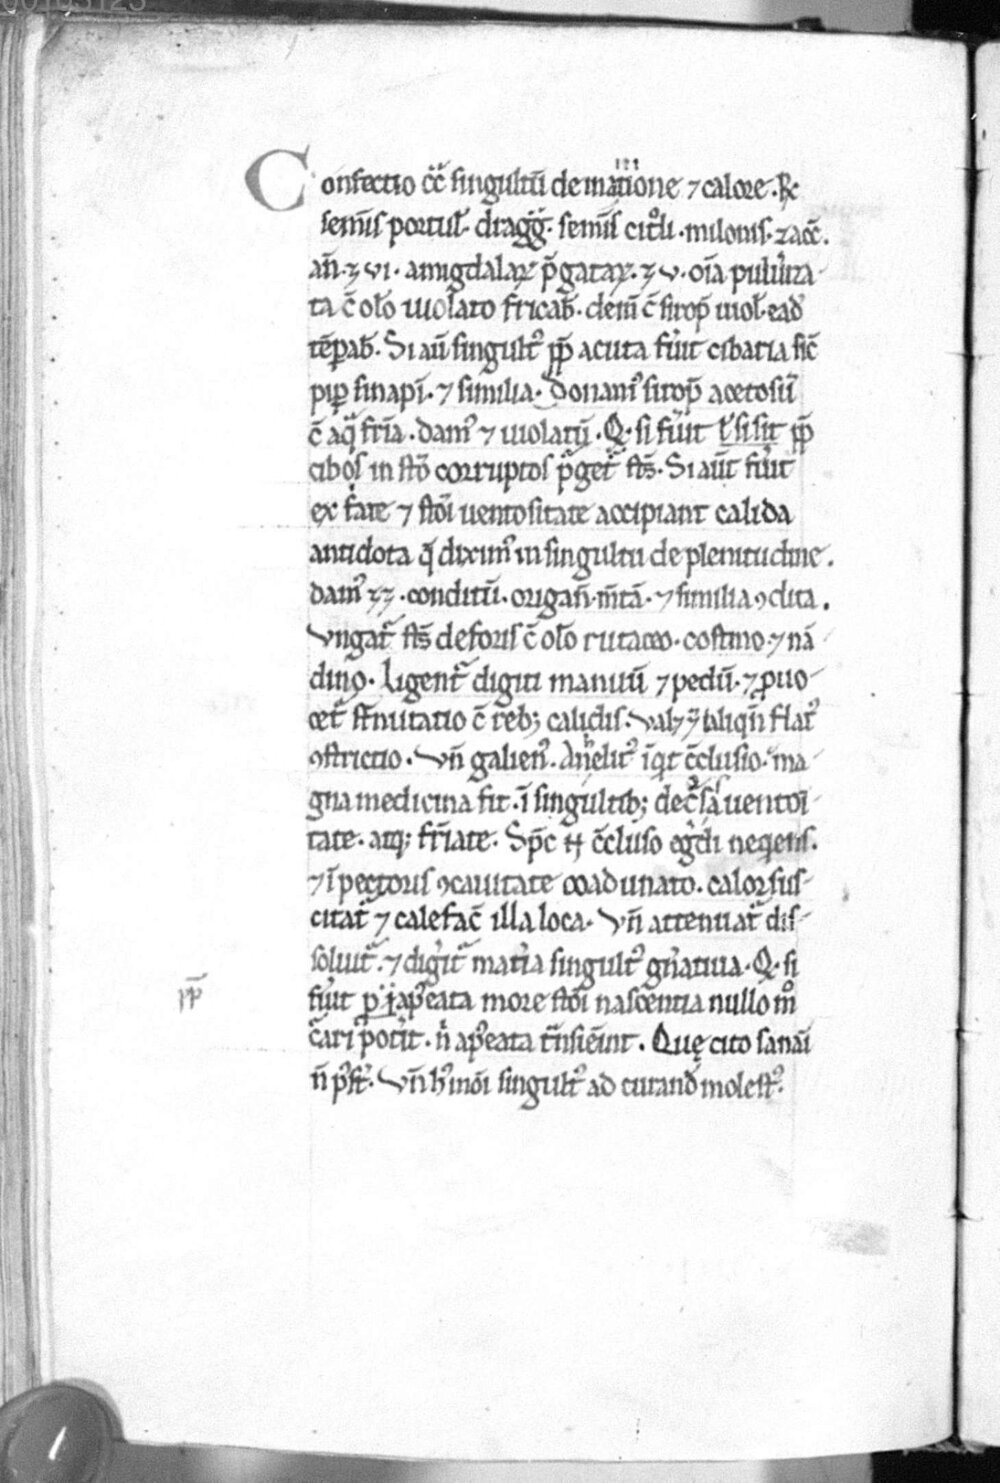 00103123
Confectio c̄c̄ singultū de inanitione ⁊ calore. ℞
sem̄is portul̄. dragḡ. sem̄is citͦli. milonis. zacc̄.
an̄. ʒ vi. amigdalaꝝ p̄gataꝝ. ʒ v. oīa puluiza-
ta c̄ olo uiolato fricab̄. dein̄ c̄ sirop̄ uiol̄. ead̄
tēpab̄. Si aū singult᷒ ꝓp̄ acuta fūit cibaria sic̄
pip̄ sinapī. ⁊ similia. Donam᷒ sirop̄ acetosū
c̄ aq̄ fria. dam᷒ ⁊ uiolatū. Q. si fūit ł si sit ꝓp̄
cibos in stō corruptos p̄get᷑ stōs. Si aūt fūit
ex farte ⁊ stōi uentositate accipiant calida
antidota q̄ dixim᷒ in singultu de plenitudine.
dam᷒ ʒʒ. conditū. origan̄. m̄tā. ⁊ similia ꝯdita.
Vngat᷑ stōs deforis c̄ olo rutaceo. costino. ⁊ nā-
dino. Ligent᷑ digiti manuū ⁊ pedū. ⁊ ꝓuo-
cet᷑ st̄nutatio c̄ reb; calidis. Val; ⁊ aliqn̄ flat᷒
ꝯstrictio. Vn̄ galien᷒. Anelit᷒ īqt c̄clusio. ma-
gna medicina fit. ī singultib; de c̄sa uentoī-
tate. atq; friate. Sp̄c c̄cluso egdi neqens.
⁊ ī pectoris ꝯcauitate coadunato. calor sus-
citat᷑ ⁊ calefac̄ illa loca. Vn̄ attenuat᷑ dis-
soluit᷑. ⁊ digit᷑ mat̄ia singult᷒ gn̄atiua. Q. si
fūit ap̄eata more stōi nascentia nullo mͦ
c̄ari potit. n̄ ap̄eata t̄nsieīnt. Quę cito sanāi
n̄ p̄st̄. Vn̄ h᷒mōi singult᷒ ad curand̄ molest᷒.
ꝓp̄